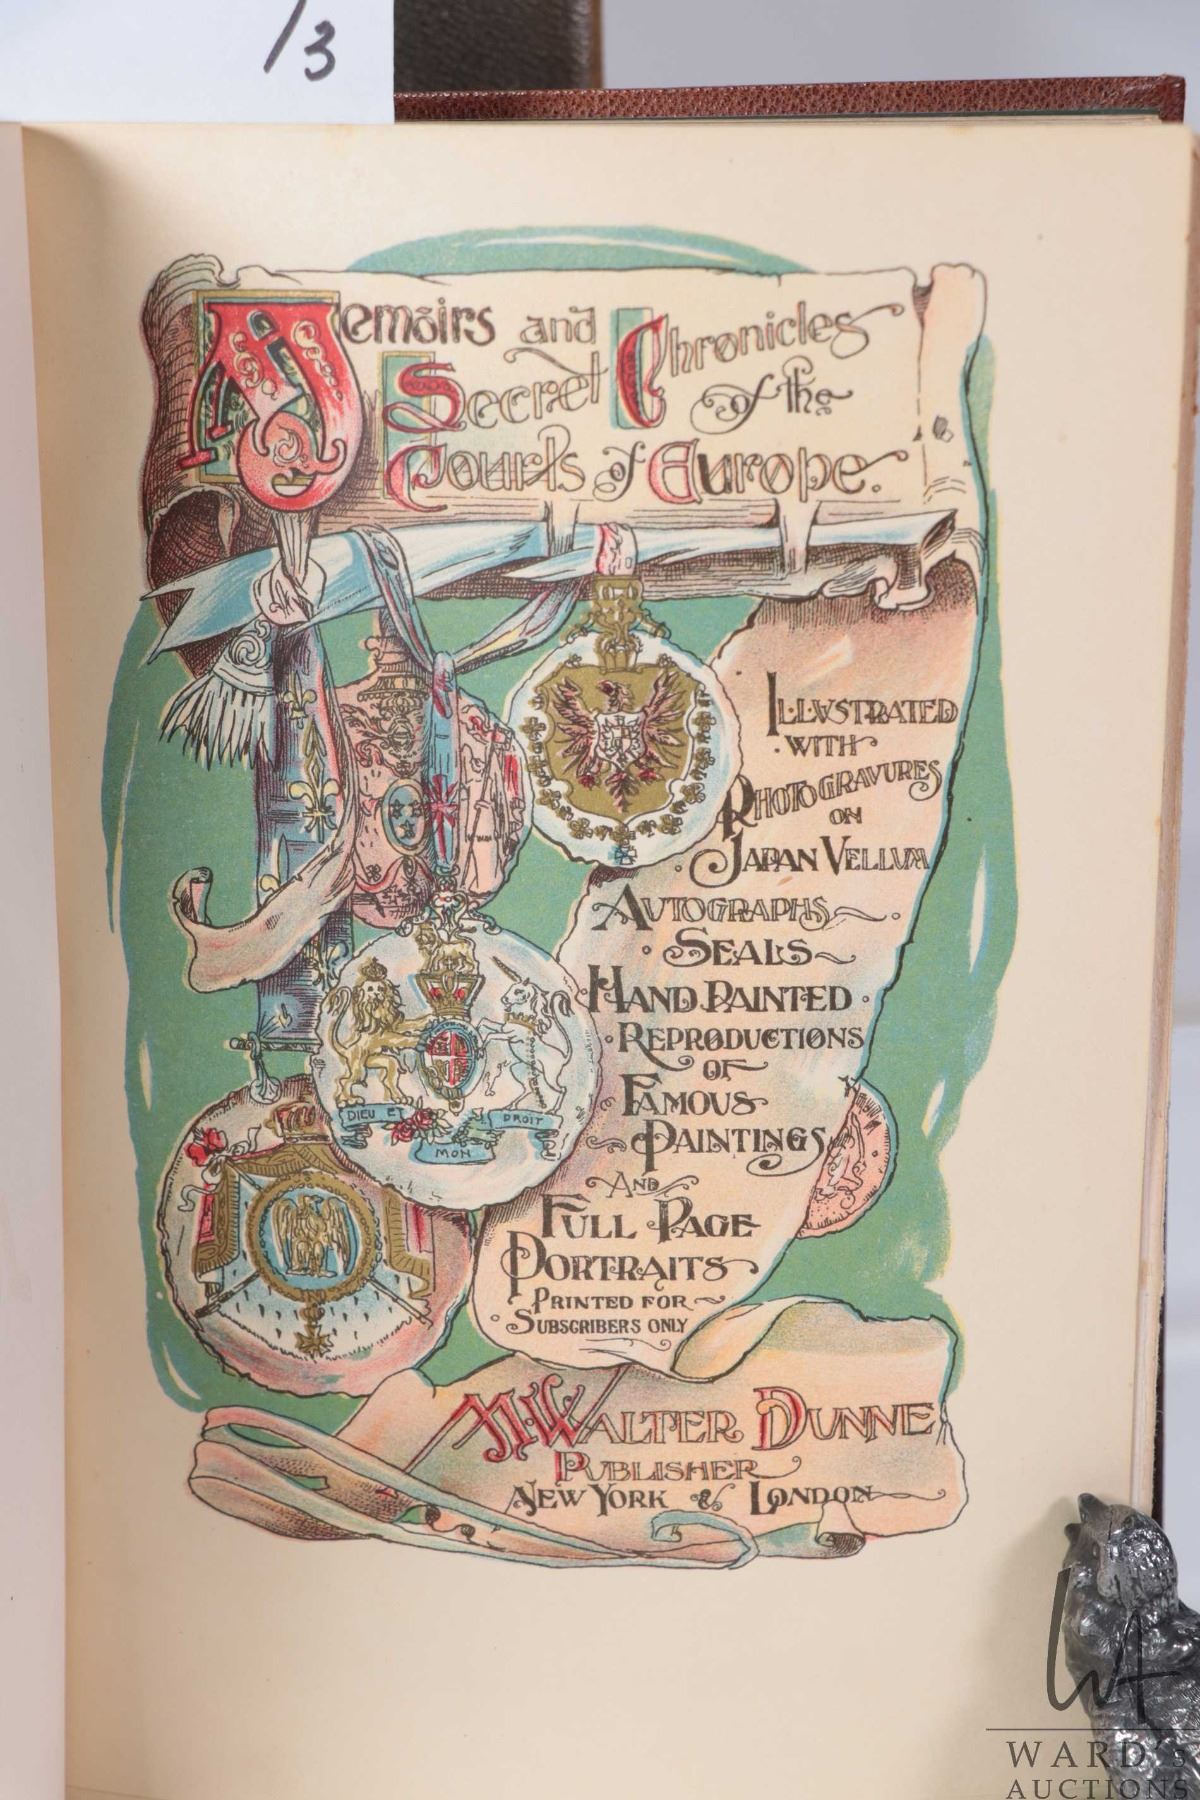 13
Memoirs and Chronicles
Secret of the
Courts of Europe.
ILLVSTRATED
WITH
PHOTOGRAVURES
ON
JAPAN VELLUM
AVTOGRAPHS
SEALS
HAND PAINTED
REPRODUCTIONS
OF
FAMOUS
PAINTINGS
AND
FULL PAGE
PORTRAITS
PRINTED FOR
SUBSCRIBERS ONLY
DIEU ET
MON
DROIT
M. WALTER DUNNE
PVBLISHER
NEW YORK & LONDON
WA
WARD'S
AUCTIONS